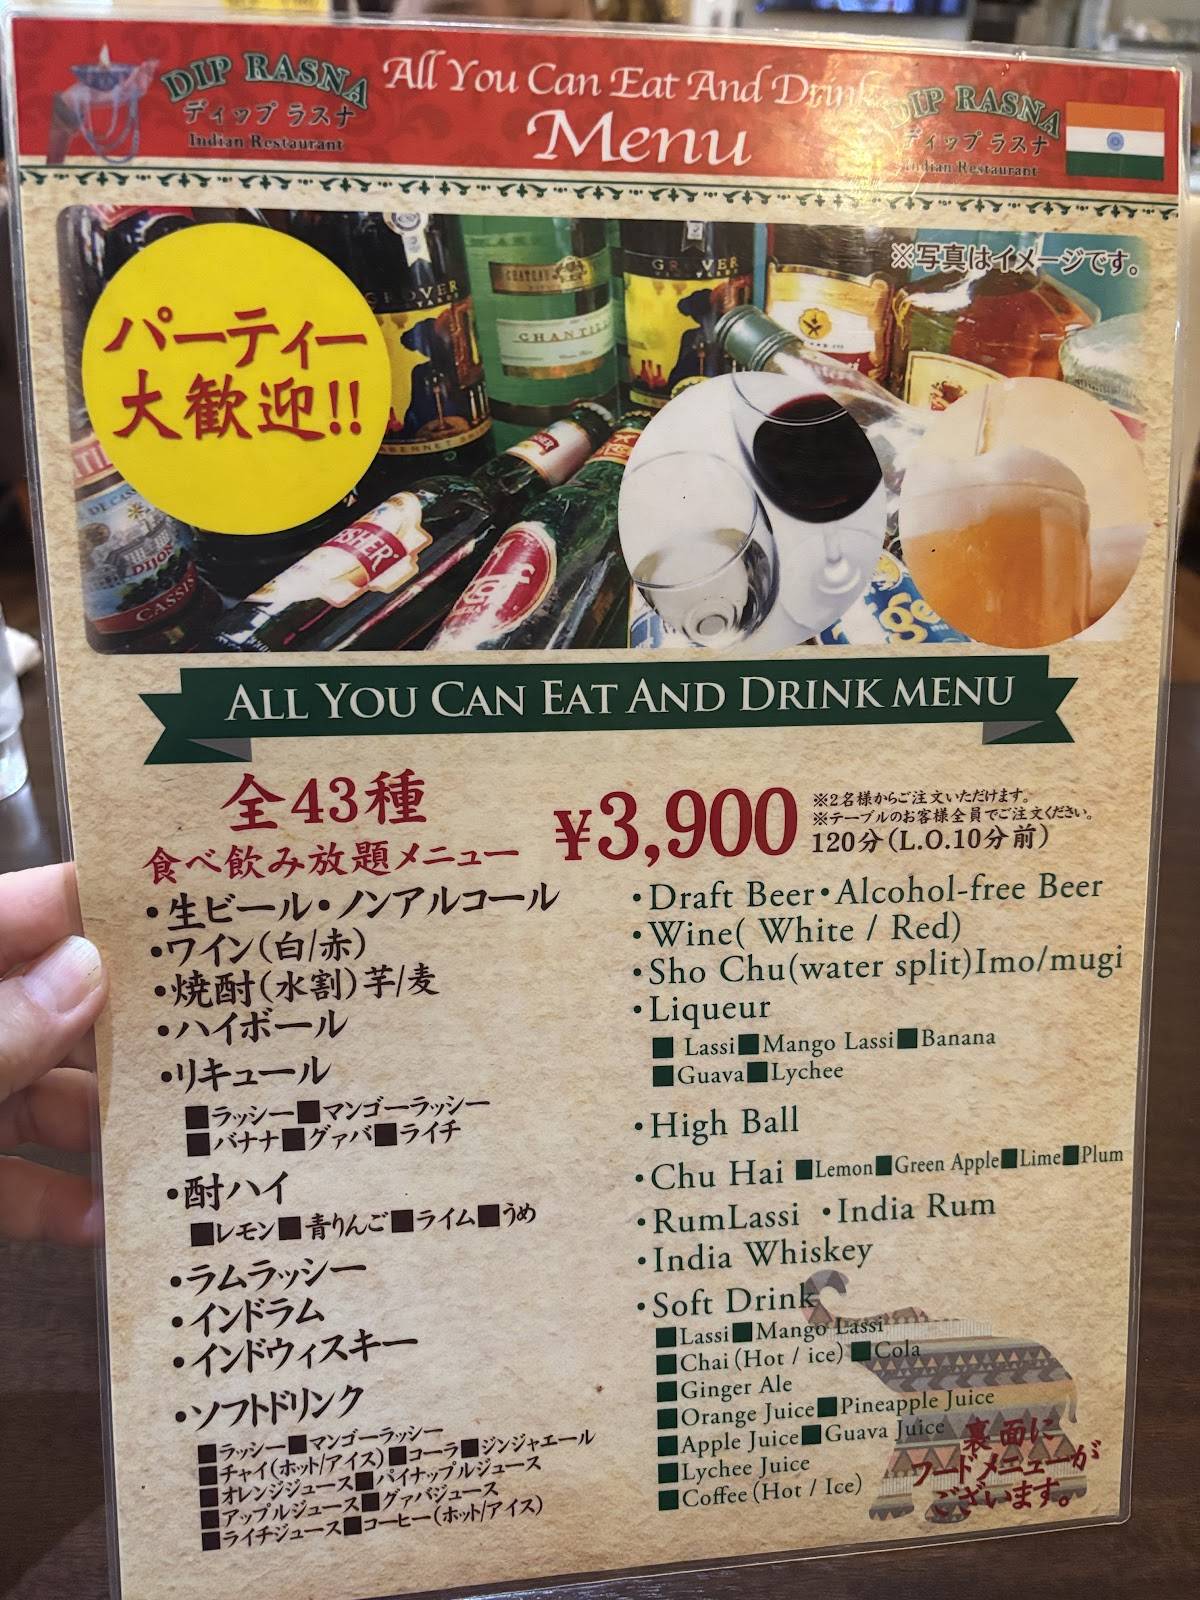 DIP RASNA
ディップ ラスナ
Indian Restaurant
All You Can Eat And Drink
Menu
DIP RASNA
ディップ ラスナ
Indian Restaurant
※写真はイメージです。
パーティー
大歓迎!!
GROVER
CHANTILLI
GROVER
DIJON
CASSIS
ALL YOU CAN EAT AND DRINK MENU
全43種
食べ飲み放題メニュー
¥3,900
※2名様からご注文いただけます。
※テーブルのお客様全員でご注文ください。
120分(L.O.10分前)
・生ビール・ノンアルコール
・ワイン(白/赤)
・焼酎(水割)芋/麦
・ハイボール
・リキュール
■ラッシー■マンゴーラッシー
■バナナ■グァバ■ライチ
・酎ハイ
■レモン■青りんご■ライム■うめ
・ラムラッシー
・インドラム
・インドウィスキー
・ソフトドリンク
■ラッシー■マンゴーラッシー
■チャイ(ホット/アイス)■コーラ■ジンジャエール
■オレンジジュース■パイナップルジュース
■アップルジュース■グァバジュース
■ライチジュース■コーヒー(ホット/アイス)
・Draft Beer・Alcohol-free Beer
・Wine( White / Red)
・Sho Chu(water split)Imo/mugi
・Liqueur
■ Lassi■Mango Lassi■Banana
■Guava■Lychee
・High Ball
・Chu Hai ■Lemon■Green Apple■Lime■Plum
・RumLassi ・India Rum
・India Whiskey
・Soft Drink
■Lassi■Mango Lassi
■Chai(Hot / ice) ■Cola
■Ginger Ale
■Orange Juice■Pineapple Juice
■Apple Juice■Guava Juice
■Lychee Juice
■Coffee(Hot / Ice)
裏面に
フードメニューが
ございます。